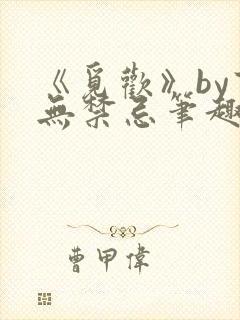 《覓歡》by
無禁忌筆趣
曹甲偉